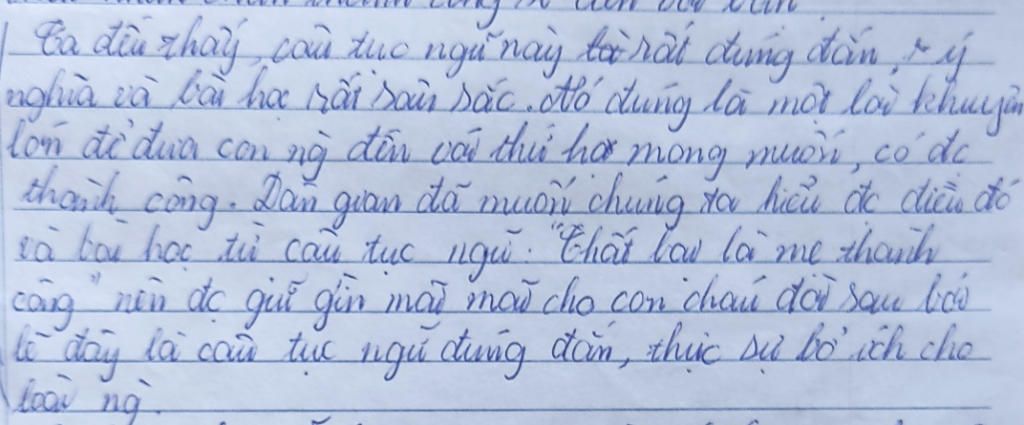 Ta đều thấy, câu tục ngữ này rất đúng đắn, ý
nghĩa và bài học rất sâu sắc. Nó đúng là một lời khuyên
lớn để đưa con ng đến với thứ họ mong muốn, có đc
thành công. Dân gian đã muốn chúng ta hiểu đc điều đó
và bài học từ câu tục ngữ: "Thất bại là mẹ thành
công" nên đc giữ gìn mãi mãi cho con cháu đời sau bởi
lẽ đây là câu tục ngữ đúng đắn, thực sự bổ ích cho
loài ng.